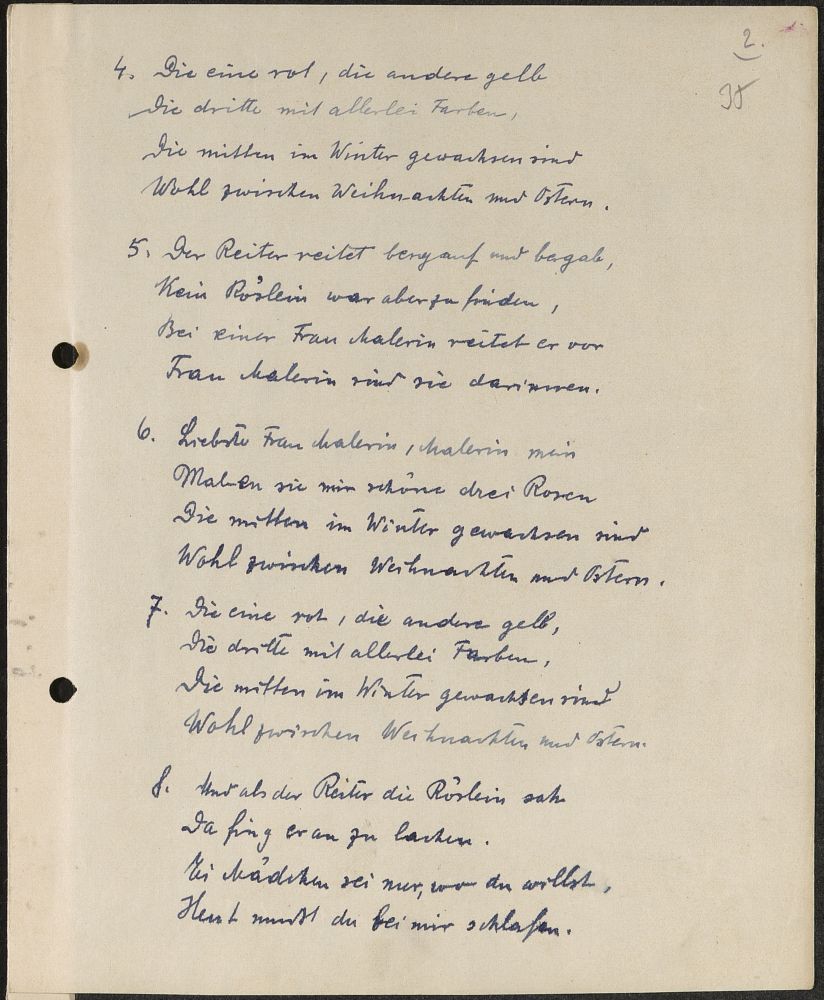 2.
4. Die eine rot, die andere gelb
Die dritte mit allerlei Farben,
Die mitten im Winter gewachsen sind
Wohl zwischen Weihnachten und Ostern.
5. Der Reiter reitet bergauf und bergab,
Kein Röslein war aber zu finden,
Bei einer Frau Malerin reitet er vor
Frau Malerin sind sie darinnen.
6. Liebste Frau Malerin, Malerin mein
Malen sie mir schöne drei Rosen
Die mitten im Winter gewachsen sind
Wohl zwischen Weihnachten und Ostern.
7. Die eine rot, die andere gelb,
Die dritte mit allerlei Farben,
Die mitten im Winter gewachsen sind
Wohl zwischen Weihnachten und Ostern.
8. Und als der Reiter die Röslein sah
Da fing er an zu lachen.
Ei Mädchen sei nur, wo du willst,
Heut mußt du bei mir schlafen.